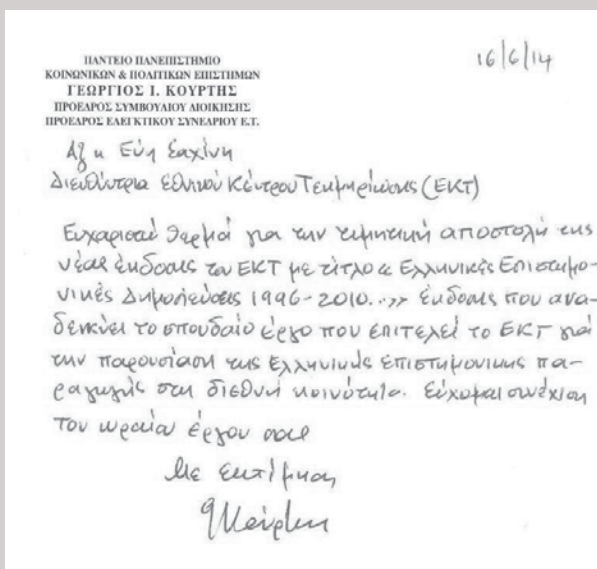 16/6/14
ΠΑΝΤΕΙΟ ΠΑΝΕΠΙΣΤΗΜΙΟ
ΚΟΙΝΩΝΙΚΩΝ & ΠΟΛΙΤΙΚΩΝ ΕΠΙΣΤΗΜΩΝ
ΓΕΩΡΓΙΟΣ Ι. ΚΟΥΡΤΗΣ
ΠΡΟΕΔΡΟΣ ΣΥΜΒΟΥΛΙΟΥ ΔΙΟΙΚΗΣΗΣ
ΠΡΟΕΔΡΟΣ ΕΛΕΓΚΤΙΚΟΥ ΣΥΝΕΔΡΙΟΥ Ε.Τ.
Αξ κ Εύη Σαχίνη
Διευθύντρια Εθνικού Κέντρου Τεκμηρίωσης (ΕΚΤ)
Ευχαριστώ θερμά για την τιμητική αποστολή της
νέας έκδοσης του ΕΚΤ με τίτλο « Ελληνικές Επιστημο-
νικές Δημοσιεύσεις 1996-2010..» έκδοσης που ανα-
δεικνύει το σπουδαίο έργο που επιτελεί το ΕΚΤ γιά
την παρουσίαση της Ελληνικής επιστημονικής πα-
ραγωγής στη διεθνή κοινότητα. Εύχομαι συνέχιση
του ωραίου έργου σας
Με εκτίμηση
ΓΚούρτης